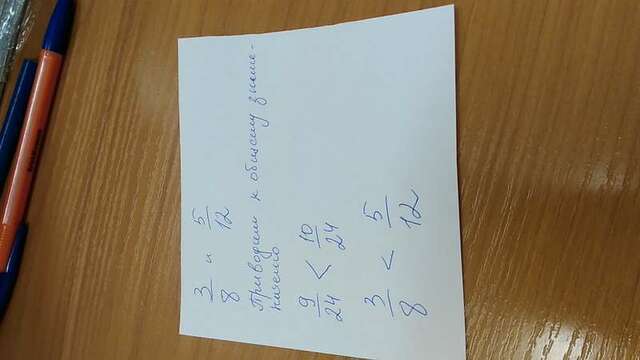 3/8 и 5/12
Приводим к общему знаме-
нателю
9/24 < 10/24
3/8 < 5/12